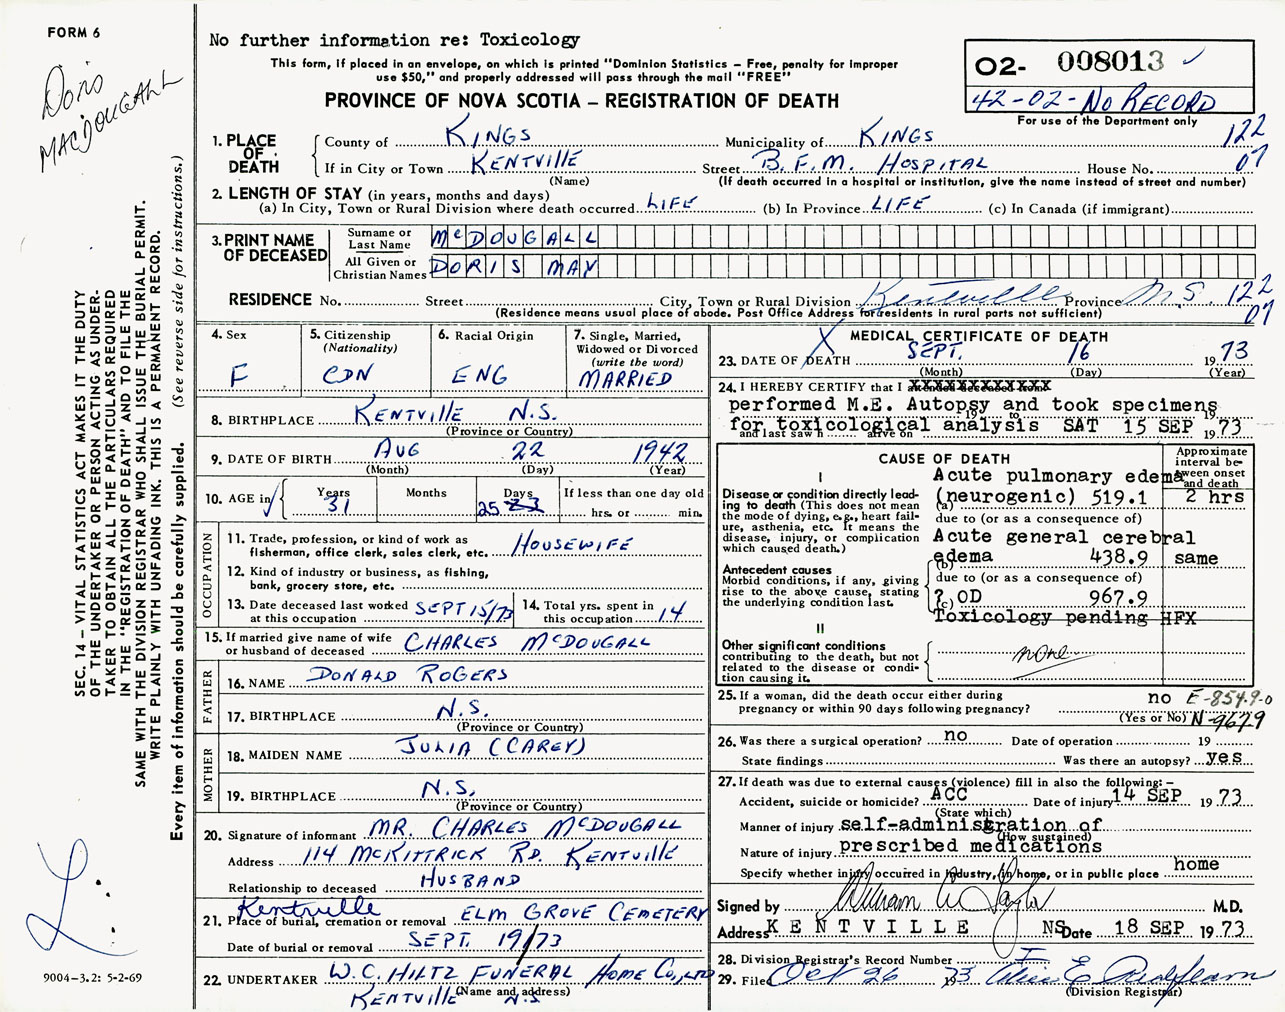 FORM 6
Doris
MacDougall
No further information re: Toxicology
This form, if placed in an envelope, on which is printed "Dominion Statistics – Free, penalty for improper
use $50," and properly addressed will pass through the mail "FREE"
PROVINCE OF NOVA SCOTIA – REGISTRATION OF DEATH
02- 008013 ✓
42-02-No RECORD
For use of the Department only
122
07
1. PLACE OF DEATH
County of KINGS Municipality of KINGS
If in City or Town KENTVILLE Street B.F.M. HOSPITAL House No.
(Name) (If death occurred in a hospital or institution, give the name instead of street and number)
2. LENGTH OF STAY (in years, months and days)
(a) In City, Town or Rural Division where death occurred LIFE (b) In Province LIFE (c) In Canada (if immigrant)
3. PRINT NAME OF DECEASED
Surname or Last Name McDOUGALL
All Given or Christian Names DORIS MAY
RESIDENCE No. Street City, Town or Rural Division Kentville Province N.S. 122
07
(Residence means usual place of abode. Post Office Address for residents in rural parts not sufficient)
4. Sex
F
5. Citizenship
(Nationality)
CDN
6. Racial Origin
ENG
7. Single, Married,
Widowed or Divorced
(write the word)
MARRIED
8. BIRTHPLACE KENTVILLE N.S.
(Province or Country)
9. DATE OF BIRTH AUG 22 1942
(Month) (Day) (Year)
10. AGE in
Years
31
Months
Days
25 23
If less than one day old
hrs. or min.
OCCUPATION
11. Trade, profession, or kind of work as
fisherman, office clerk, sales clerk, etc. HOUSEWIFE
12. Kind of industry or business, as fishing,
bank, grocery store, etc.
13. Date deceased last worked
at this occupation SEPT 15/73
14. Total yrs. spent in
this occupation 14
15. If married give name of wife
or husband of deceased CHARLES McDOUGALL
FATHER
16. NAME DONALD ROGERS
17. BIRTHPLACE N.S.
(Province or Country)
MOTHER
18. MAIDEN NAME JULIA (CAREY)
19. BIRTHPLACE N.S.
(Province or Country)
20. Signature of informant MR. CHARLES McDOUGALL
Address 114 McKITTRICK RD. KENTVILLE
Relationship to deceased HUSBAND
Kentville
21. Place of burial, cremation or removal ELM GROVE CEMETERY
Date of burial or removal SEPT. 19/73
22. UNDERTAKER W.C. HILTZ FUNERAL HOME CO., LTD
(Name and address)
KENTVILLE N.S.
X MEDICAL CERTIFICATE OF DEATH
23. DATE OF DEATH SEPT. 16 1973
(Month) (Day) (Year)
24. I HEREBY CERTIFY that I attended deceased from
performed M.E. Autopsy and took specimens
19 to 19
for toxicological analysis SAT 15 SEP 73
and last saw h alive on 19
CAUSE OF DEATH
Approximate
interval be-
tween onset
and death
I
Disease or condition directly lead-
ing to death (This does not mean
the mode of dying, e.g., heart fail-
ure, asthenia, etc. It means the
disease, injury, or complication
which caused death.)
Acute pulmonary edema
(a) (neurogenic) 519.1 2 hrs
due to (or as a consequence of)
Acute general cerebral
(b) edema 438.9 same
Antecedent causes
Morbid conditions, if any, giving
rise to the above cause, stating
the underlying condition last.
due to (or as a consequence of)
(c) ? OD 967.9
Toxicology pending HFX
II
Other significant conditions
contributing to the death, but not
related to the disease or condi-
tion causing it.
none
25. If a woman, did the death occur either during
pregnancy or within 90 days following pregnancy? no
(Yes or No)
E-854.9-0
N-9679
26. Was there a surgical operation? no Date of operation 19
State findings Was there an autopsy? yes
27. If death was due to external causes (violence) fill in also the following:–
Accident, suicide or homicide? ACC Date of injury 14 SEP 1973
(State which)
Manner of injury self-administration of
(How sustained)
Nature of injury prescribed medications
Specify whether injury occurred in industry, in home, or in public place home
Signed by William M.D.
Address KENTVILLE NS Date 18 SEP 1973
28. Division Registrar's Record Number
29. Filed Oct 26 1973
(Division Registrar)
SEC. 14 – VITAL STATISTICS ACT MAKES IT THE DUTY
OF THE UNDERTAKER OR PERSON ACTING AS UNDER-
TAKER TO OBTAIN ALL THE PARTICULARS REQUIRED
IN THE "REGISTRATION OF DEATH" AND TO FILE THE
SAME WITH THE DIVISION REGISTRAR WHO SHALL ISSUE THE BURIAL PERMIT.
WRITE PLAINLY WITH UNFADING INK. THIS IS A PERMANENT RECORD.
Every item of information should be carefully supplied. (See reverse side for instructions.)
9004–3.2: 5-2-69